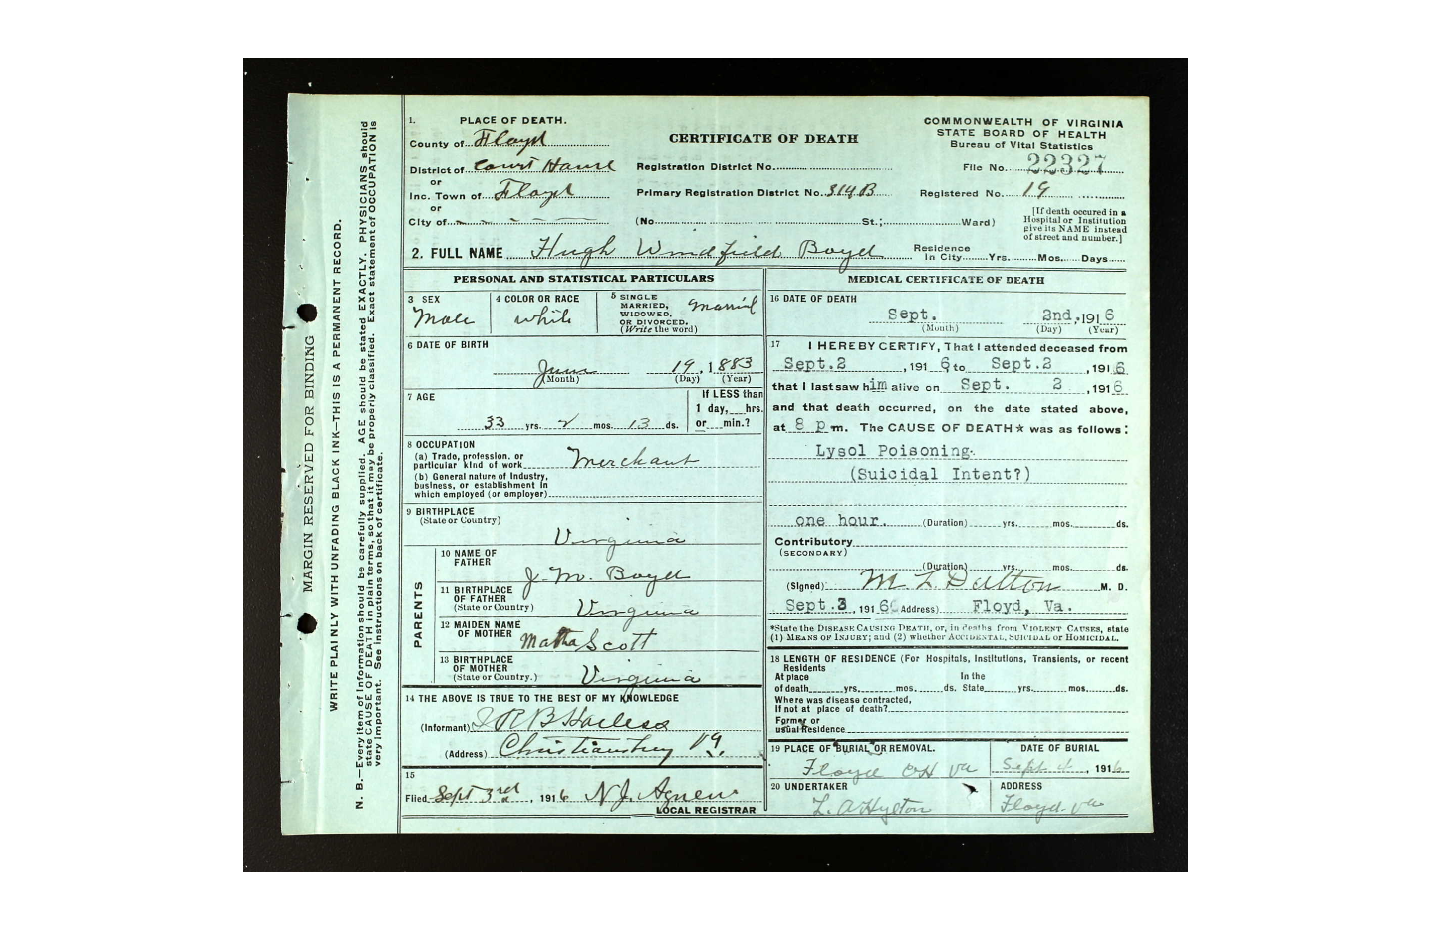 MARGIN RESERVED FOR BINDING
WRITE PLAINLY WITH UNFADING BLACK INK—THIS IS A PERMANENT RECORD.
N. B.—Every item of Information should be carefully supplied. AGE should be stated EXACTLY. PHYSICIANS should
state CAUSE OF DEATH in plain terms, so that it may be properly classified. Exact statement of OCCUPATION is
very important. See instructions on back of certificate.
1. PLACE OF DEATH.
County of Floyd
District of Court House
or
Inc. Town of Floyd
or
City of
CERTIFICATE OF DEATH
Registration District No.
Primary Registration District No. 314B
(No. St.; Ward)
COMMONWEALTH OF VIRGINIA
STATE BOARD OF HEALTH
Bureau of Vital Statistics
File No. 22327
Registered No. 19
[If death occured in a
Hospital or Institution
give its NAME instead
of street and number.]
2. FULL NAME Hugh Windfield Boyd
Residence
In City Yrs. Mos. Days
PERSONAL AND STATISTICAL PARTICULARS
3 SEX
Male
4 COLOR OR RACE
white
5 SINGLE
MARRIED,
WIDOWED,
OR DIVORCED.
(Write the word)
Married
6 DATE OF BIRTH
June 19, 1883
(Month) (Day) (Year)
7 AGE
33 yrs. 2 mos. 13 ds.
If LESS than
1 day, hrs.
or min.?
8 OCCUPATION
(a) Trade, profession. or
particular kind of work Merchant
(b) General nature of Industry,
business, or establishment in
which employed (or employer)
9 BIRTHPLACE
(State or Country)
Virginia
PARENTS
10 NAME OF
FATHER
J. M. Boyd
11 BIRTHPLACE
OF FATHER
(State or Country)
Virginia
12 MAIDEN NAME
OF MOTHER
Matha Scott
13 BIRTHPLACE
OF MOTHER
(State or Country.)
Virginia
14 THE ABOVE IS TRUE TO THE BEST OF MY KNOWLEDGE
(Informant)
(Address) Christiansburg Va.
15
Filed Sept 3rd, 1916 N. J. Agnew
LOCAL REGISTRAR
MEDICAL CERTIFICATE OF DEATH
16 DATE OF DEATH
Sept. 2nd, 1916
(Month) (Day) (Year)
17 I HEREBY CERTIFY, That I attended deceased from
Sept.2, 1916 to Sept.2, 1916
that I last saw him alive on Sept. 2, 1916
and that death occurred, on the date stated above,
at 8 p m. The CAUSE OF DEATH* was as follows:
Lysol Poisoning.
(Suicidal Intent?)
one hour. (Duration) yrs. mos. ds.
Contributory
(SECONDARY)
(Duration) yrs. mos. ds.
(Signed) M. L. Dalton M. D.
Sept.3, 1916 (Address) Floyd, Va.
*State the DISEASE CAUSING DEATH, or, in deaths from VIOLENT CAUSES, state
(1) MEANS OF INJURY; and (2) whether ACCIDENTAL, SUICIDAL or HOMICIDAL.
18 LENGTH OF RESIDENCE (For Hospitals, Institutions, Transients, or recent
Residents
At place In the
of death yrs. mos. ds. State yrs. mos. ds.
Where was disease contracted,
If not at place of death?
Former or
usual Residence
19 PLACE OF BURIAL OR REMOVAL.
Floyd CH Va
DATE OF BURIAL
Sept 4, 1916
20 UNDERTAKER
L. A Hylton
ADDRESS
Floyd Va